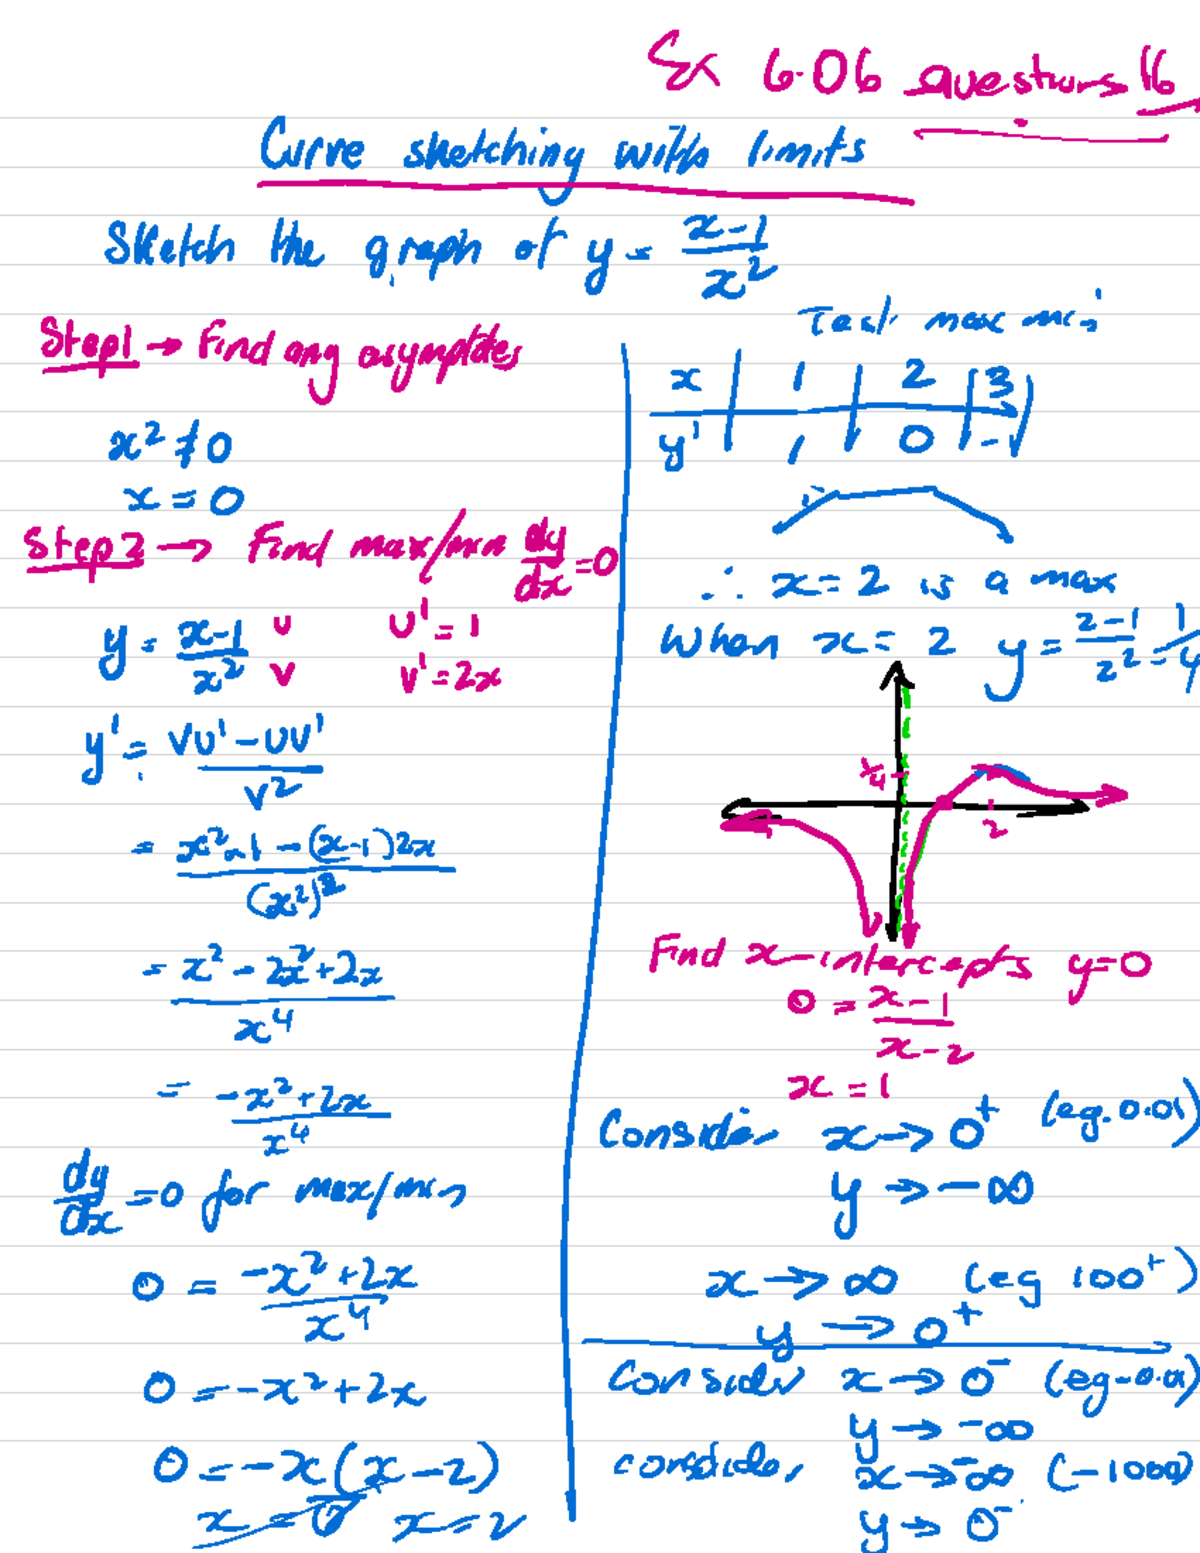 Ex 6.06 questions 16
Curve sketching with limits
Sketch the graph of y = (x-1)/x²
Step1 → Find any asymptotes
x² ≠ 0
x = 0
Step2 → Find max/min dy/dx = 0
y = (x-1)/x² u v u' = 1
v' = 2x
y' = (vu' - uv')/v²
= (x²×1 - (x-1)2x)/(x²)²
= (x² - 2x² + 2x)/x⁴
= (-x² + 2x)/x⁴
dy/dx = 0 for max/min
0 = (-x² + 2x)/x⁴
0 = -x² + 2x
0 = -x(x-2)
x = 0 x = 2
Test max min
x | 1 | 2 | 3
y' | 1 | 0 | -1
∴ x = 2 is a max
When x = 2 y = (2-1)/2² = 1/4
1/4
2
Find x-intercepts y=0
0 = (x-1)/(x-2)
x = 1
Consider x → 0⁺ (eg. 0.01)
y → -∞
x → ∞ (eg 100⁺)
y → 0⁺
Consider x → 0⁻ (eg -0.01)
y → -∞
consider x → -∞ (-1000)
y → 0⁻